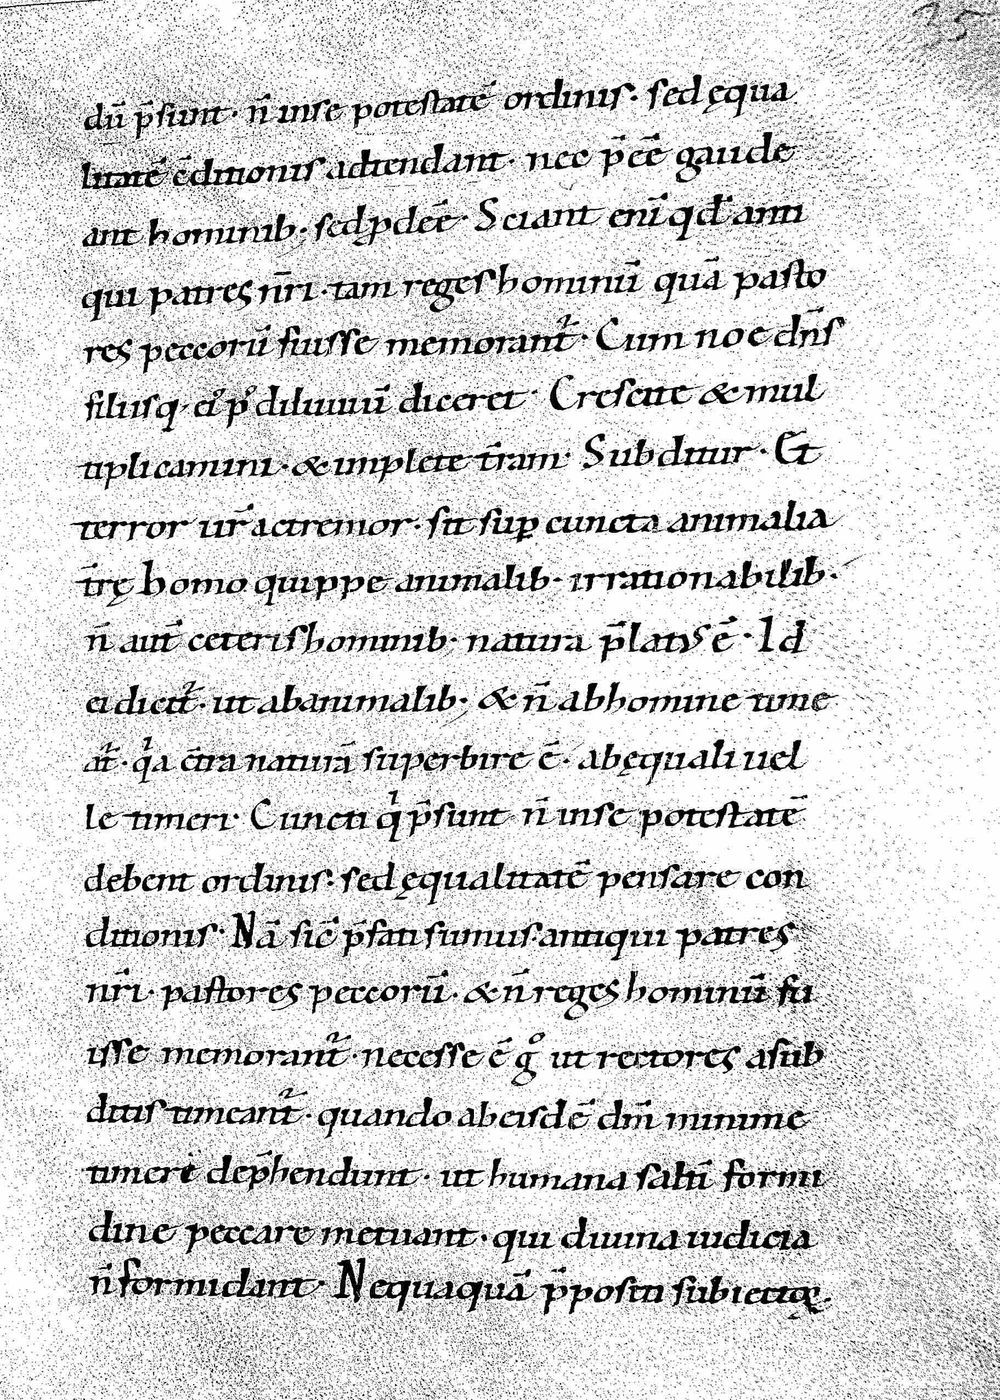 35
dū p̄sunt· n̄ inse potestatē ordinis· sed ęqua
litatē ɔ̄ditionis adtendant· nec p̄eē gaude
ant hominib; sed ꝓdeē· Sciant enī qđ anti
qui patres nr̄i· tam reges hominū quā pasto
res peccorū fuisse memorant᷑· Cum noe dn̄s
filiisq; ei᷒ p᷒ diluuiū diceret· Crescite & mul
tiplicamini· & implete t̄ram· Subditur· Et
terror ur̄ ac tremor· sit sup̲ cuncta animalia
t̄rę homo quippe animalib· irrationabilib·
n̄ aut̄ ceteris hominib· natura p̄latus ē· Id
ei dicit᷑· ut abanimalib; & n̄ abhomine time
at᷑· qⁱa c̄tra naturā superbire ē· abęquali uel
le timeri· Cuncti qⁱ p̄sunt n̄ inse potestatē
debent ordinis· sed ęqualitatē pensare con
ditionis· Nā sic̄ p̄fati sumus· antiqui patres
nr̄i· pastores peccorū· & n̄ reges hominū fu
isse memorant᷑· necesse ē gͦ ut rectores asub
ditis timeant᷑· quando abeisdē dm̄ minime
timeri dep̄hendunt· ut humana saltī formi
dine peccare metuant· qui diuina iudicia
n̄ formidant· Nequaquā p̄positi subiectoꝝ·